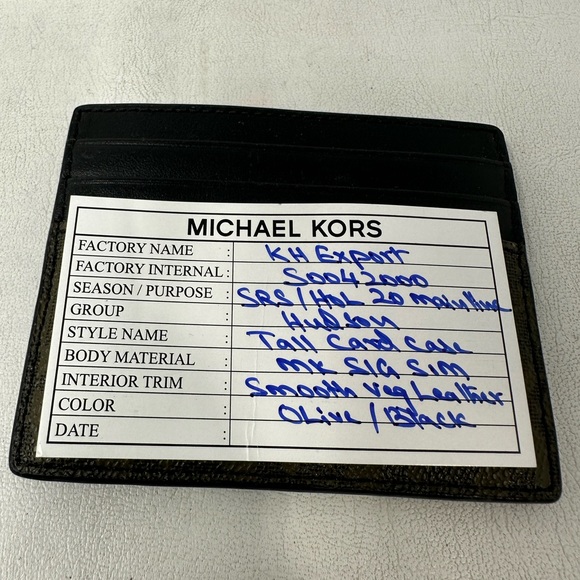 MICHAEL KORS
FACTORY NAME : KH Export
FACTORY INTERNAL : S0042000
SEASON / PURPOSE : SRS / HOL 20
GROUP : Hudson
STYLE NAME : Tall Card case
BODY MATERIAL : MK SIG SIM
INTERIOR TRIM : Smooth Veg Leather
COLOR : OLive / Black
DATE :